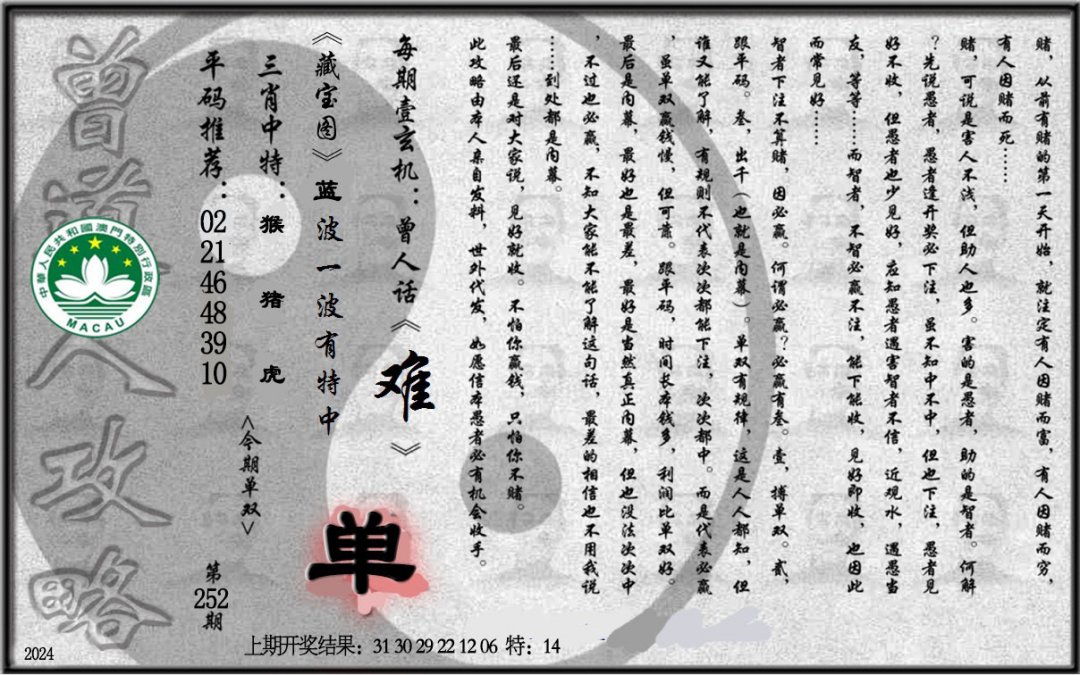 赌，从前有赌的第一天开始，就注定有人因赌而富，有人因赌而穷，
有人因赌而死……
赌，可说是害人不浅，但助人也多。害的是愚者，助的是智者。何解
？先说愚者，愚者逢开奖必下注，虽不知中不中，但也下注，愚者见
好不收，但愚者也少见好，应知愚者遇害智者不信，近观水，遇愚当
友，等等……而智者，不智必赢不注，能下能收，见好即收，也因此
而常见好……
智者下注不算赌，因必赢。何谓必赢？必赢有叁。壹，搏单双。贰，
跟平码。叁，出千（也就是内幕）。单双有规律，这是人人都知，但
谁又能了解，有规则不代表次次都能下注，次次都中。而是代表必赢
，虽单双赢钱慢，但可靠。跟平码，时间长本钱多，利润比单双好。
最后是内幕，最好也是最差，最好是当然真正内幕，但也没法次次中
，不过也必赢，不知大家能不能了解这句话，最差的相信也不用我说
……到处都是内幕。
最后还是对大家说，见好就收。不怕你赢钱，只怕你不赌。
此攻略由本人亲自发料，世外代发，如愿信本愚者必有机会收手。
每期壹玄机：曾人话《难》
《藏宝图》蓝波一波有特中
三肖中特：猴 猪 虎
<今期单双>
单
平码推荐：02 21 46 48 39 10
第252期
曾道人攻略
中華人民共和國澳門特別行政區
MACAU
2024
上期开奖结果：31 30 29 22 12 06 特：14